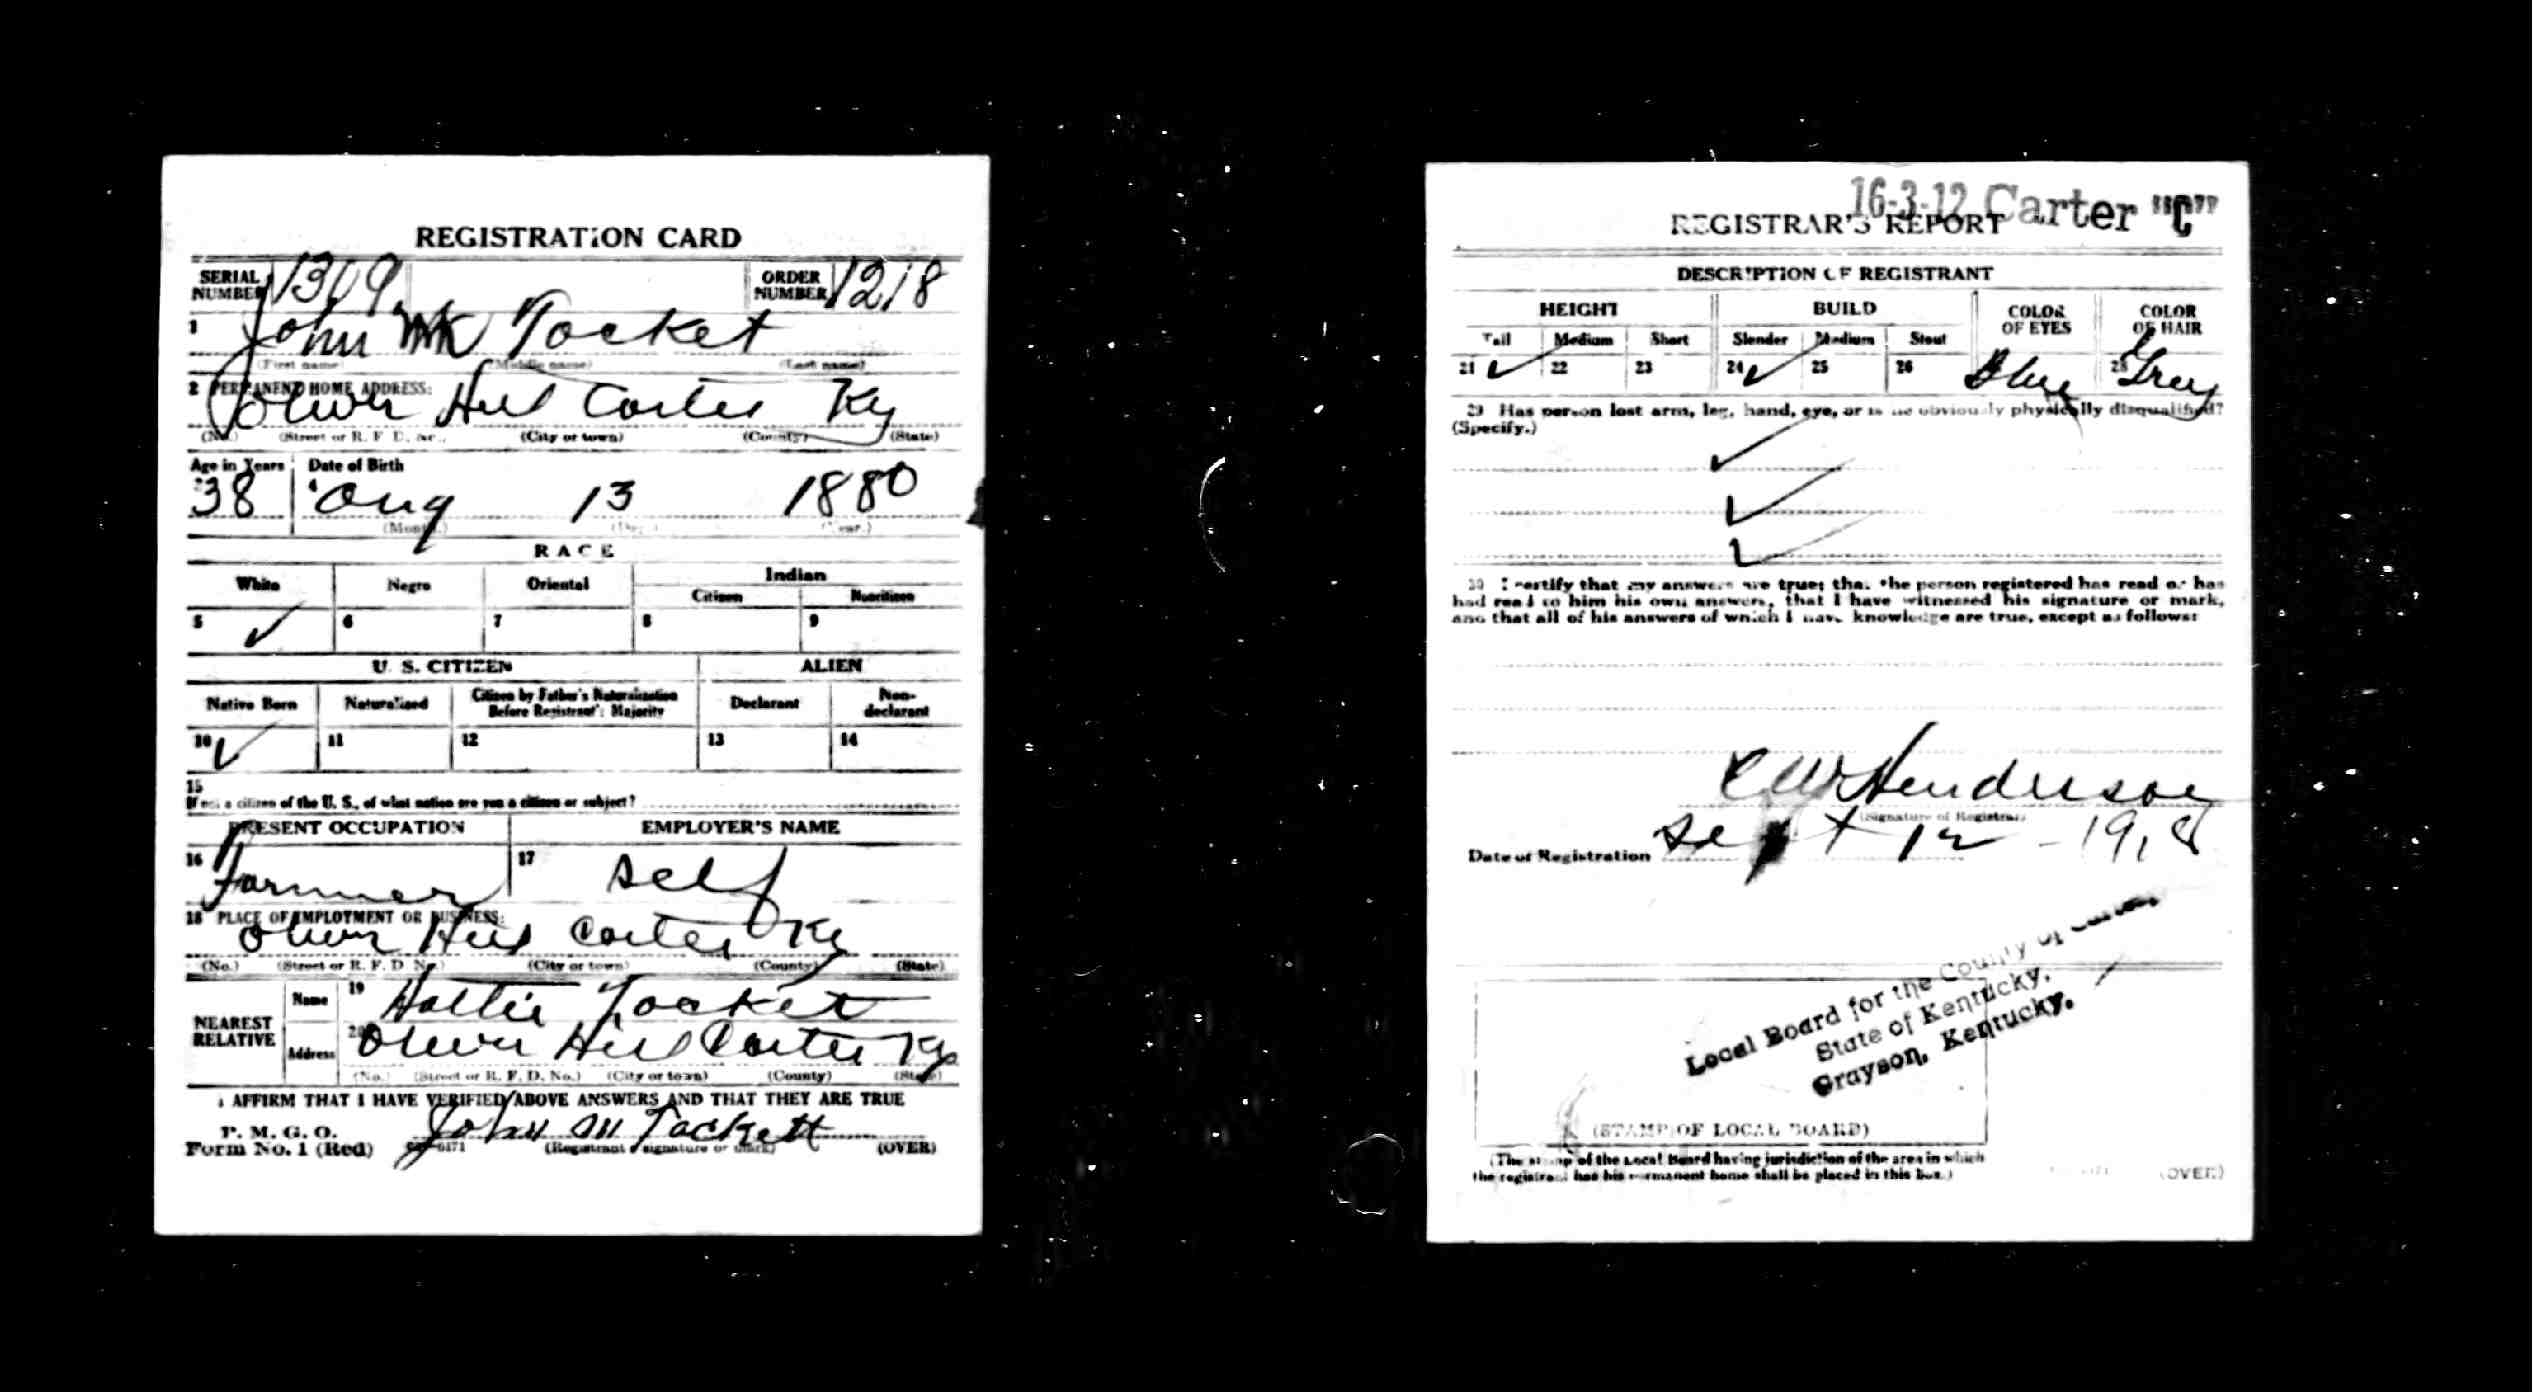 REGISTRATION CARD
SERIAL NUMBER 1309 ORDER NUMBER 1218
1 John Tacket
(First name) (Middle name) (Last name)
2 PERMANENT HOME ADDRESS:
Oliver Hill Carter Ky
(No.) (Street or R. F. D. No.) (City or town) (County) (State)
Age in Years Date of Birth
38 4 Aug 13 1880
(Month.) (Day.) (Year.)
RACE
White Negro Oriental Indian
Citizen Noncitizen
5 ✓ 6 7 8 9
U. S. CITIZEN ALIEN
Native Born Naturalized Citizen by Father's Naturalization Before Registrant's Majority Declarant Non-declarant
10 ✓ 11 12 13 14
15
If not a citizen of the U. S., of what nation are you a citizen or subject?
PRESENT OCCUPATION EMPLOYER'S NAME
16 Farmer 17 Self
18 PLACE OF EMPLOYMENT OR BUSINESS:
Oliver Hill Carter Ky
(No.) (Street or R. F. D. No.) (City or town) (County) (State)
NEAREST RELATIVE Name 19 Hattie Tacket
Address 20 Oliver Hill Carter Ky
(No.) (Street or R. F. D. No.) (City or town) (County) (State)
I AFFIRM THAT I HAVE VERIFIED ABOVE ANSWERS AND THAT THEY ARE TRUE
P. M. G. O.
Form No. 1 (Red) John M Tackett (OVER)
(Registrant's signature or mark)
16-3-12 Carter "C"
REGISTRAR'S REPORT
DESCRIPTION OF REGISTRANT
HEIGHT BUILD COLOR OF EYES COLOR OF HAIR
Tall Medium Short Slender Medium Stout
21 ✓ 22 23 24 ✓ 25 26 Blue 28 Grey
29 Has person lost arm, leg, hand, eye, or is he obviously physically disqualified?
(Specify.)
✓
✓
✓
30 I certify that my answers are true; that the person registered has read or has
had read to him his own answers, that I have witnessed his signature or mark,
and that all of his answers of which I have knowledge are true, except as follows:
C W Henderson
(Signature of Registrar)
Date of Registration Sept 12 - 1918
Local Board for the County of Carter,
State of Kentucky,
Grayson, Kentucky.
(STAMP OF LOCAL BOARD)
(The stamp of the Local Board having jurisdiction of the area in which
the registrant has his permanent home shall be placed in this box.)
(OVER)